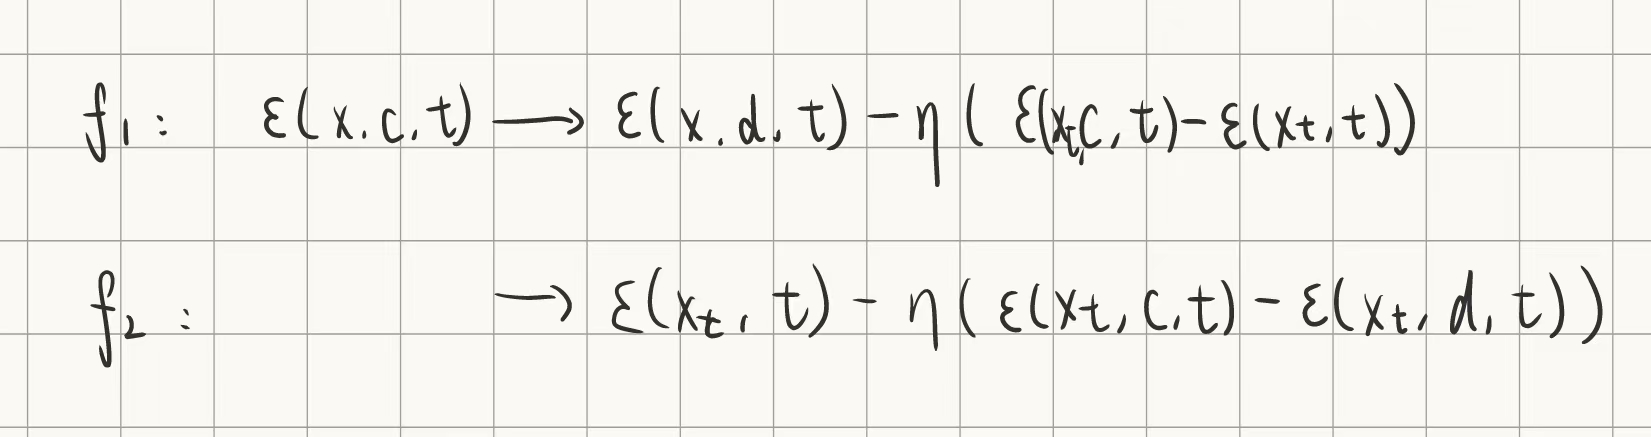 f₁: ε(x.c.t) ⟶ ε(x.d.t) − η( ε(xₜ,c,t) − ε(xₜ,t))
f₂: ⟶ ε(xₜ,t) − η(ε(xₜ,c,t) − ε(xₜ,d,t))